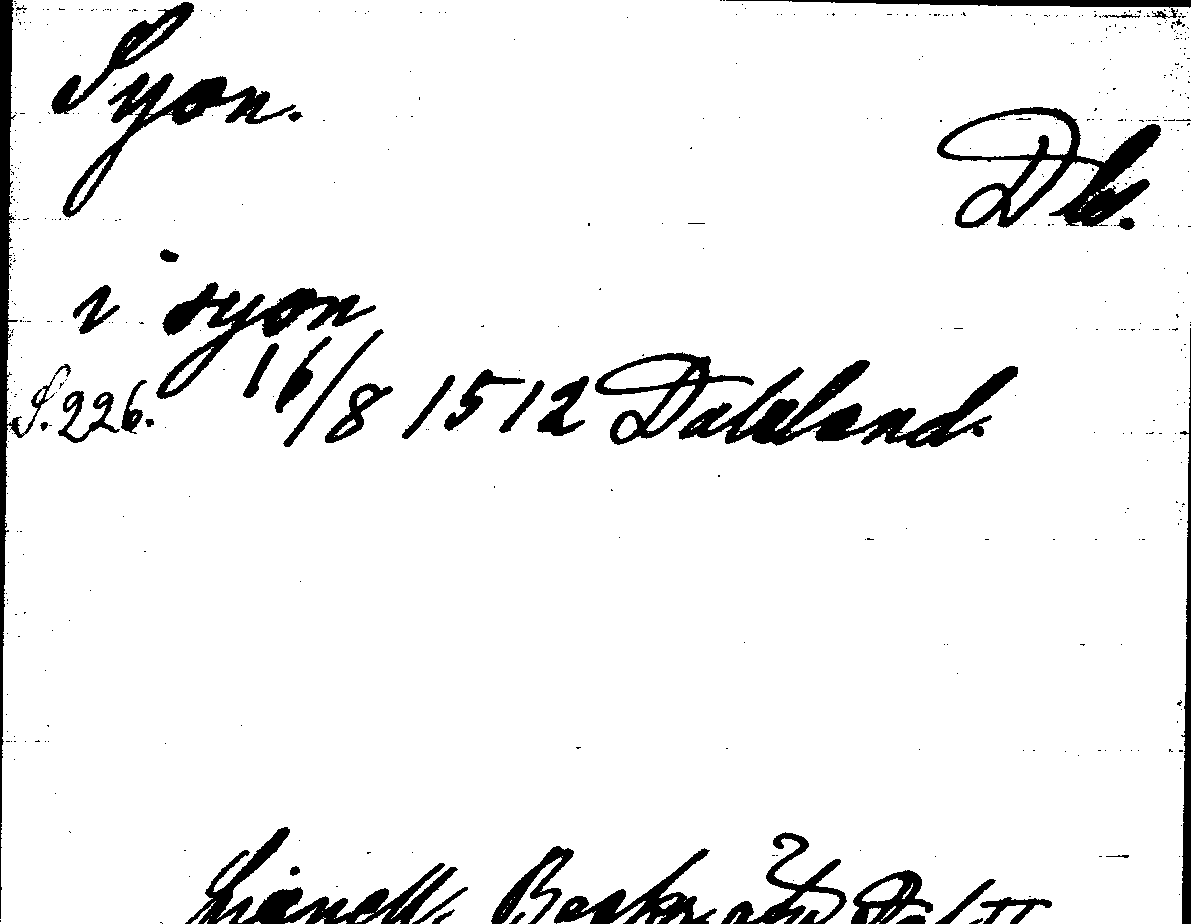 Syon.
Dls.
i syon
S. 226. 16/8 1512 Dalsland.
Lignell, Beskr. öfv. Dal II